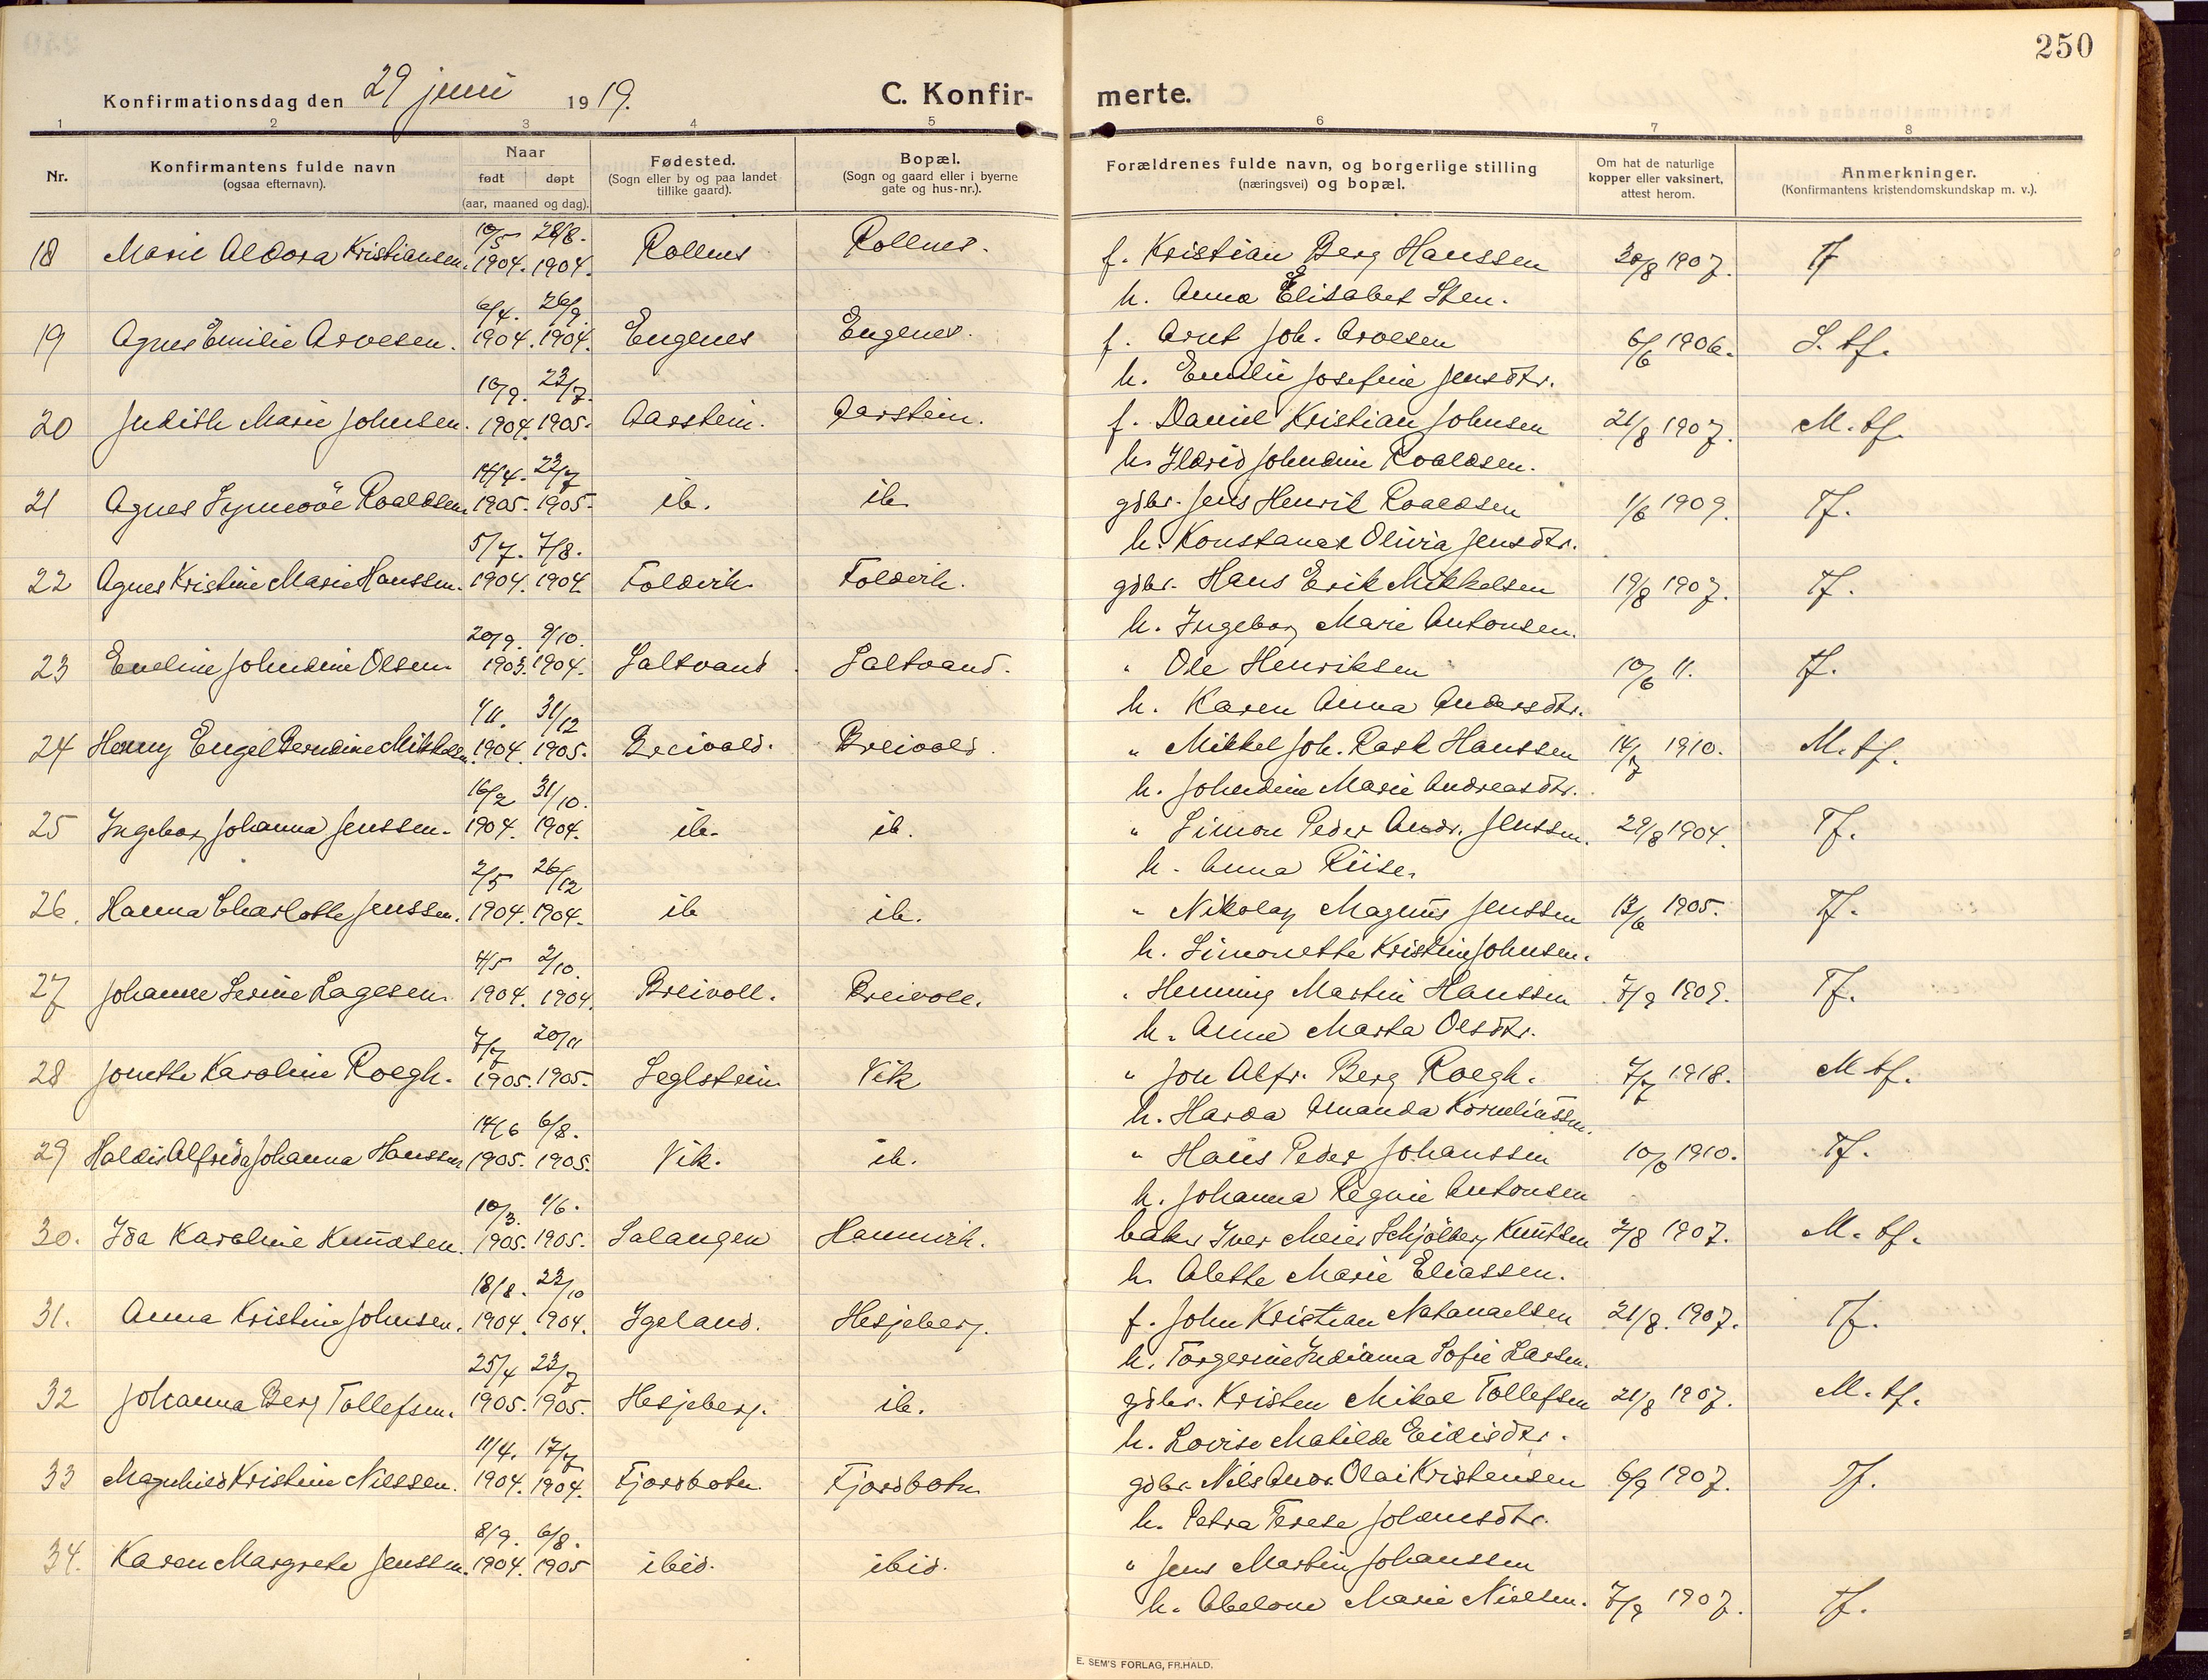 250
Konfirmationsdag den 29 juni 1919.
C. Konfir-
merte.
1 2 3 4 5 6 7 8
Nr.
Konfirmantens fulde navn
(ogsaa efternavn).
Naar
født døpt
(aar, maaned og dag).
Fødested.
(Sogn eller by og paa landet
tillike gaard).
Bopæl.
(Sogn og gaard eller i byerne
gate og hus-nr.).
Forældrenes fulde navn, og borgerlige stilling
(næringsvei) og bopæl.
Om hat de naturlige
kopper eller vaksinert,
attest herom.
Anmerkninger.
(Konfirmantens kristendomskundskap m. v.).
10/5 28/8.
18 Marie Aldora Kristiansen. 1904. 1904. Rollnes Rollnes. f. Kristian Berg Hanssen 30/8 1907. Tf
h. Anna Elisabet Sten.
6/4. 26/9.
19 Agnes Emilie Arvesen. 1904. 1904. Engenes Engenes. f. Arnt Joh. Arvesen 6/6 1906. S. tf.
h. Emilie Josefine Jensdtr.
10/9. 23/7.
20 Judith Marie Johnsen. 1904. 1905. Aarstein. Aarstein. f. Daniel Kristian Johnsen 21/8 1907. M. tf.
h. Johndine Roaldsen.
14/4. 23/7
21 Agnes Synnøve Roaldsen. 1905. 1905. ib. ib. gdbr. Jens Henrik Roaldsen 1/6 1909. Tf.
h. Konstanse Olivia Jensdtr.
5/7. 7/8.
22 Agnes Kristine Marie Hanssen. 1904. 1904. Foldvik. Foldvik. gdbr. Hans Erik Mikkelsen 19/8 1907. Tf.
h. Ingeborg Marie Antonsen.
20/9. 9/10.
23 Eveline Johndine Olsen. 1903. 1904. Saltvand Saltvand. " Ole Henriksen 10/6 11. tf.
h. Karen Anna Andersdtr.
1/11. 31/12
24 Henny Engel Berndine Mikkelsen. 1904. 1905. Breivold. Breivold. " Mikkel Joh. Rask Hanssen 14/7 1910. M. tf.
h. Johndine Marie Andreasdtr.
16/2 31/10.
25 Ingeborg Johanna Jenssen. 1904. 1904. ib. ib. " Simon Peder Andr. Jenssen. 29/8 1904. Tf.
h. Anna Riise.
2/5 26/12
26. Hanna Charlotte Jenssen. 1904. 1904. ib ib. " Nikolay Magnus Jenssen 13/6 1905. Tf.
h. Simonette Kristine Johnsen.
4/5 2/10.
27 Johanne Serine Lagesen. 1904. 1904. Breivoll. Breivoll. " Henning Martin Hanssen 7/9 1909. Tf.
h. Anne Marta Olsdtr.
7/7 20/11
28 Jonette Karoline Roegh. 1905. 1905. Seglstein Vik " Jon Alfr. Berg Roegh. 7/7 1918. M tf.
h. Harda Amanda Korneliussen.
14/6 6/8.
29 Haldis Alfrida Johanna Hanssen 1905. 1905. Vik. ib. " Hans Peder Johanssen 10/6 1910. Tf.
h. Johanna Regine Antonsen
10/3. 1/6.
30. Ida Karoline Knudsen. 1905. 1905. Salangen Hamnvik. baker Iver Meier Schjølberg Knutsen 2/8 1907. M. tf.
h. Alette Marie Eliassen.
18/8. 23/10
31. Anna Kristine Johnsen. 1904. 1904. Igeland. Hesjeberg. f. John Kristian Natanaelsen 21/8. 1907. Tf.
h. Torgerine Indianna Sofie Larsen.
25/4 23/7
32 Johanna Berg Tollefsen. 1905. 1905. Hesjeberg. ib. gdbr. Kristen Mikal Tollefsen 21/8 1907. M. tf.
h. Lovise Matilde Eidisdtr.
11/4. 17/7
33 Magnhild Kristine Nilssen. 1904. 1904. Fjordbotn Fjordbotn gdbr. Nils Andr. Olai Kristensen 6/9 1907. Tf.
h. Petra Terese Johansdtr.
8/9. 6/8.
34. Karen Margrete Jenssen. 1904. 1905 ibid. ibid. " Jens Martin Johanssen
h. Abelone Marie Nielsen. 7/9 1907. Tf.
E. SEM'S FORLAG, FR.HALD.